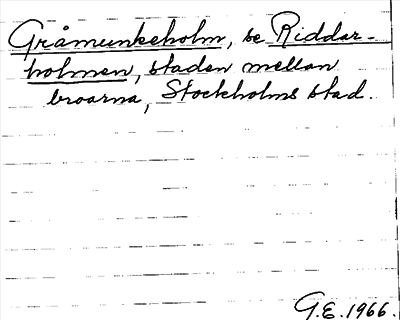 Gråmunkeholm, se Riddar-
holmen, staden mellan
broarna, Stockholms stad.
G.E. 1966.